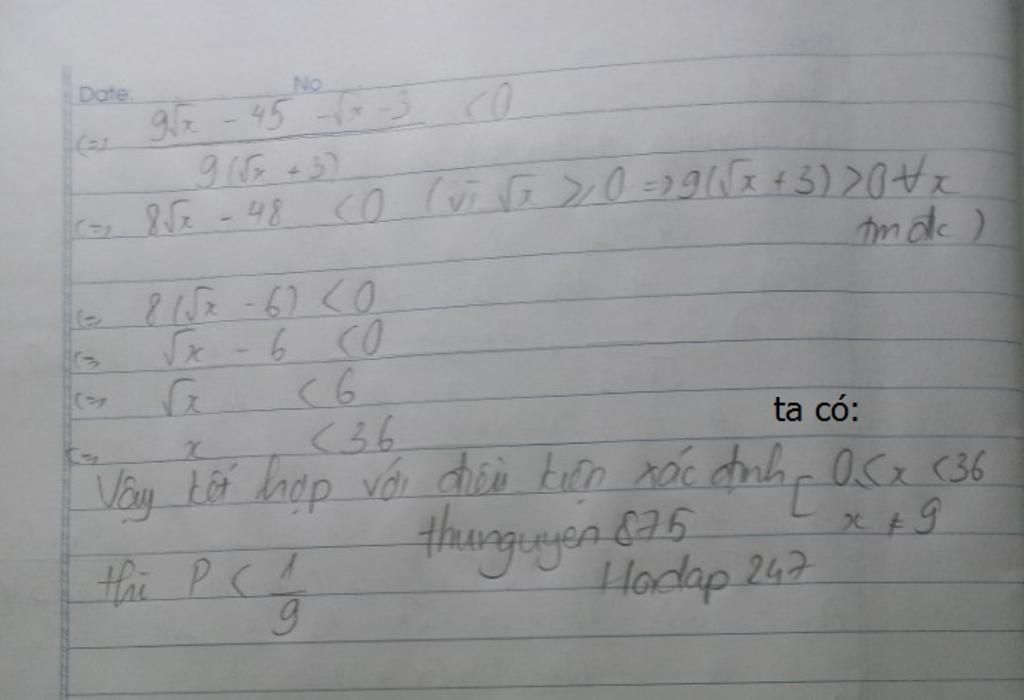 Date. No
<=> 9√x - 45 - √x - 3 < 0
9(√x + 3)
<=> 8√x - 48 < 0 (vì √x ≥ 0 => 9(√x + 3) > 0 ∀x
tmđk)
<=> 8(√x - 6) < 0
<=> √x - 6 < 0
<=> √x < 6
<=> x < 36
ta có:
Vậy kết hợp với điều kiện xác định [ 0 ≤ x < 36
x ≠ 9
thunguyen875
thì P < 1/9
Hoidap247